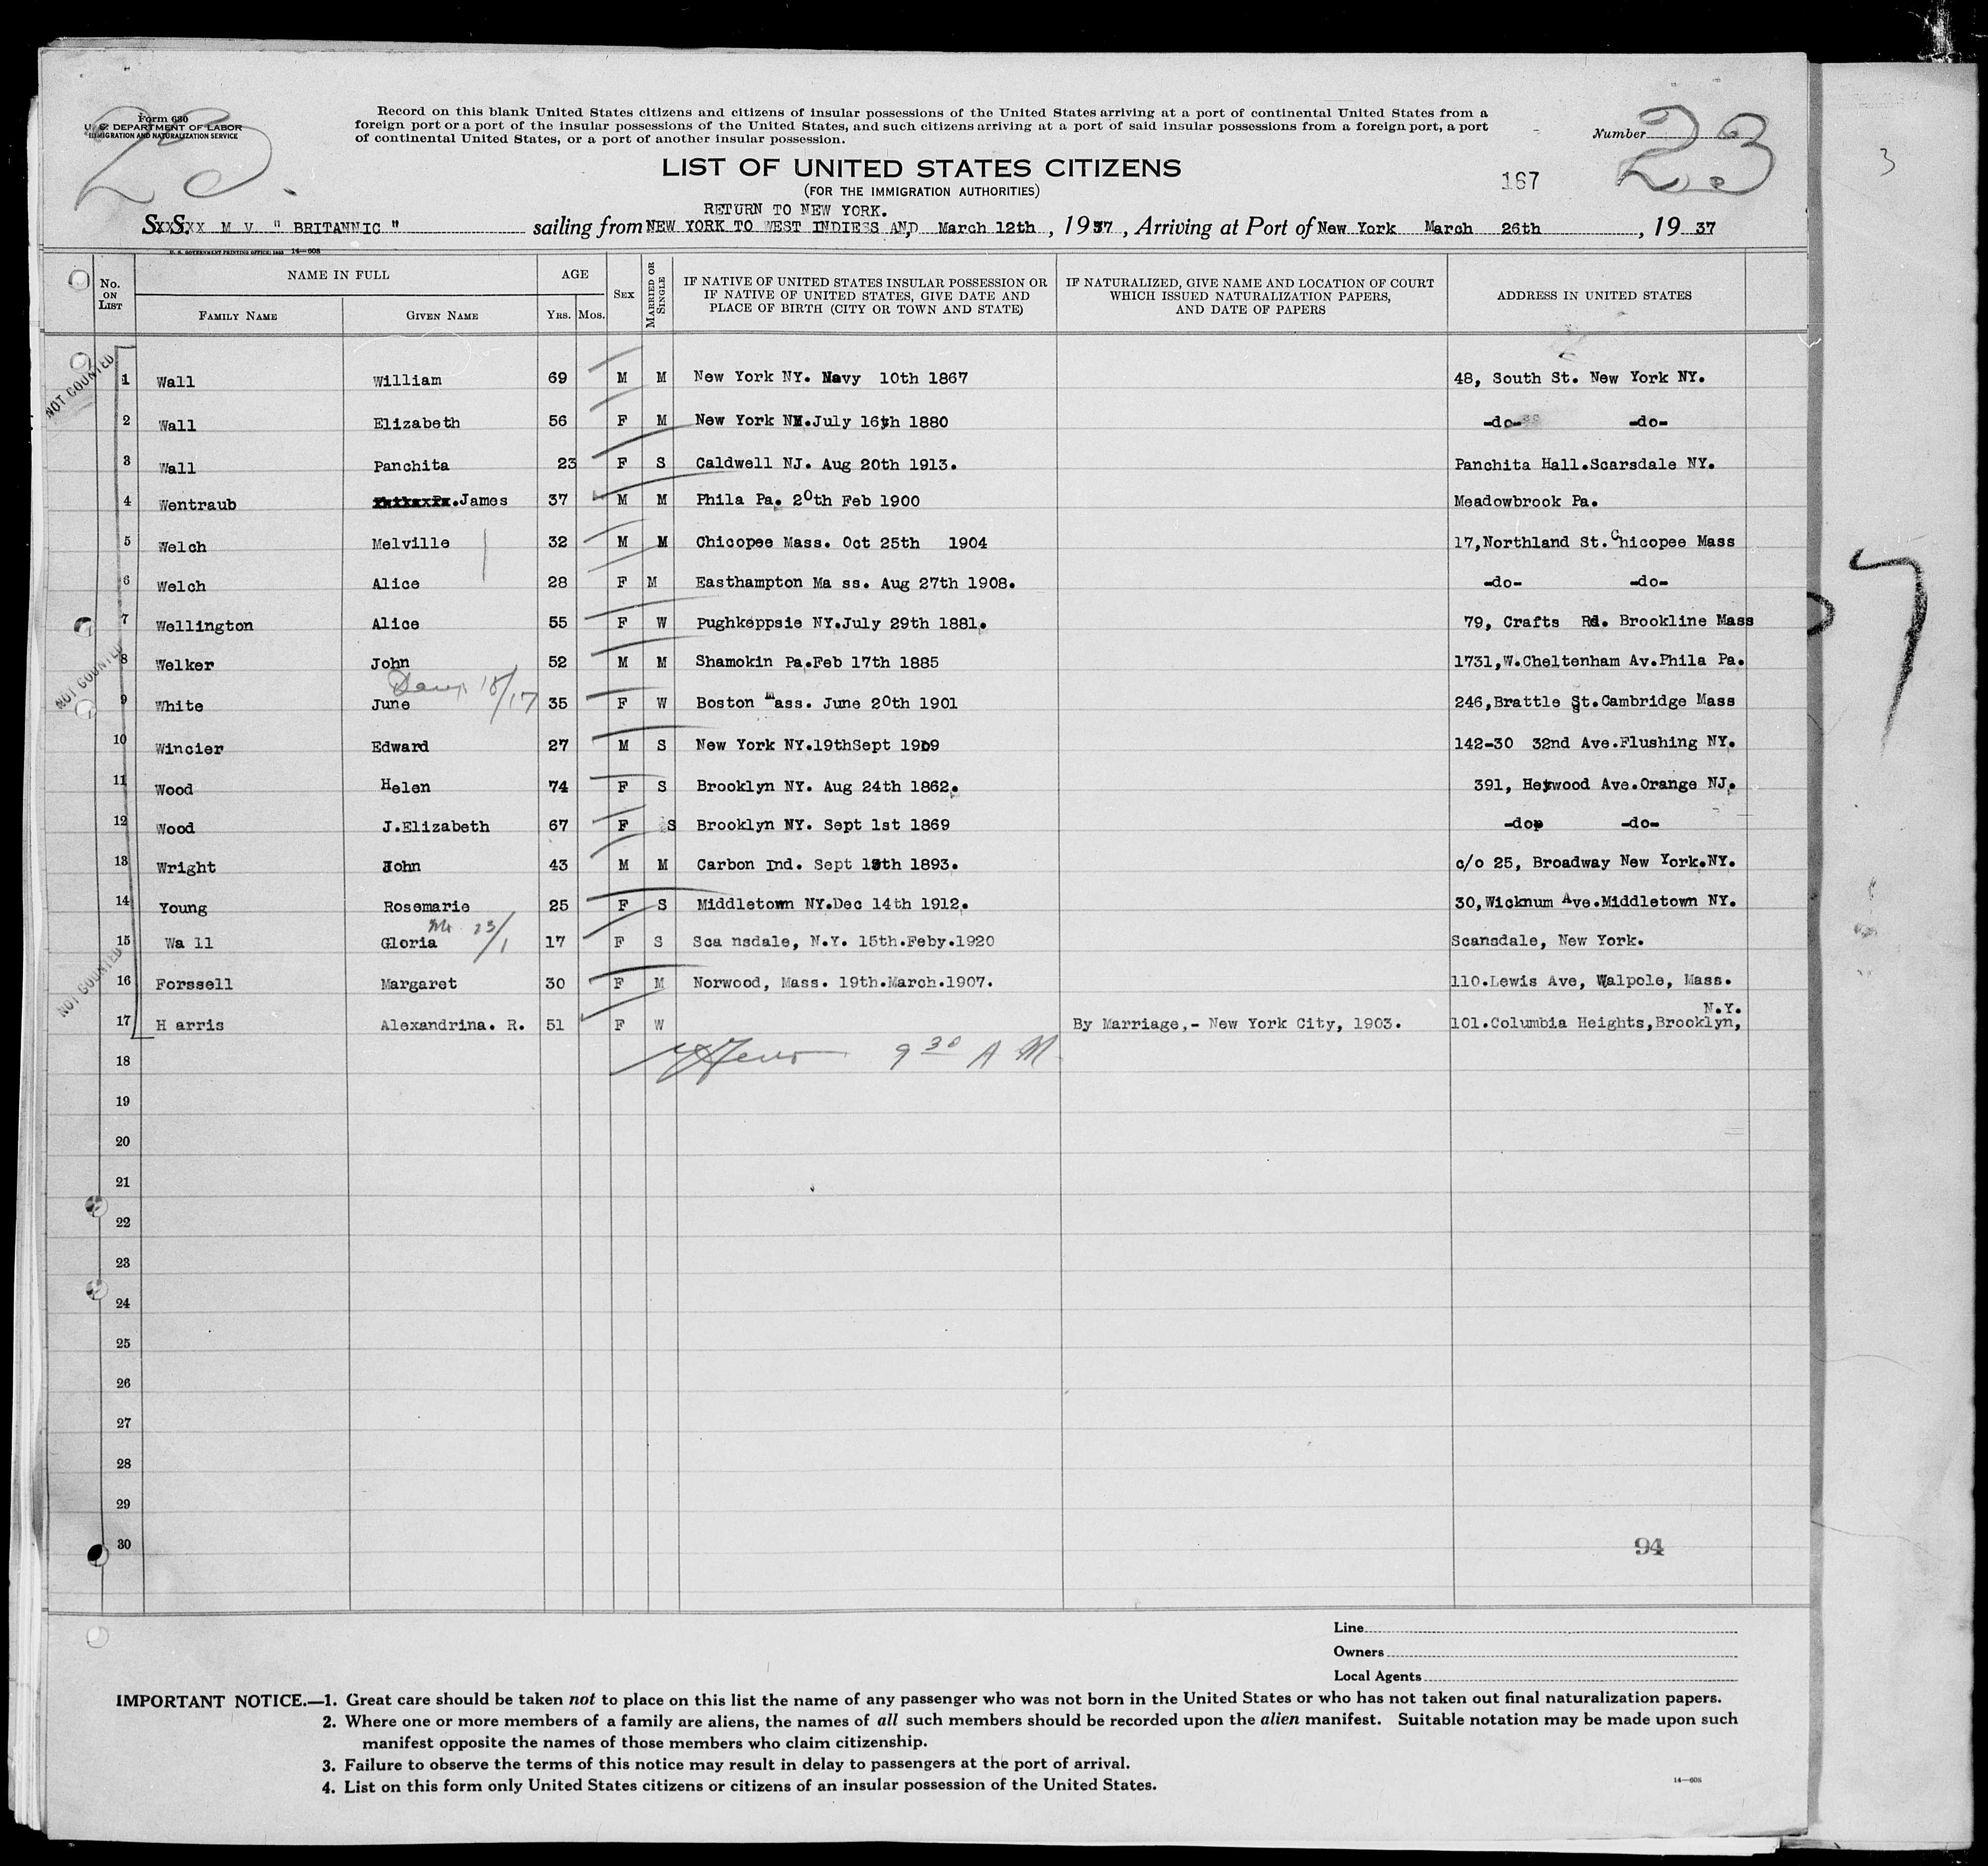 Form 630
U. S. DEPARTMENT OF LABOR
IMMIGRATION AND NATURALIZATION SERVICE
Record on this blank United States citizens and citizens of insular possessions of the United States arriving at a port of continental United States from a
foreign port or a port of the insular possessions of the United States, and such citizens arriving at a port of said insular possessions from a foreign port, a port
of continental United States, or a port of another insular possession.
Number 23
3
LIST OF UNITED STATES CITIZENS
(FOR THE IMMIGRATION AUTHORITIES)
167
RETURN TO NEW YORK.
S. S. M V " BRITANNIC " sailing from NEW YORK TO WEST INDIES AND, March 12th , 1937 , Arriving at Port of New York March 26th , 19 37
U. S. GOVERNMENT PRINTING OFFICE: 14—608
No. ON LIST
NAME IN FULL
FAMILY NAME GIVEN NAME
AGE
YRS. MOS.
SEX
MARRIED OR SINGLE
IF NATIVE OF UNITED STATES INSULAR POSSESSION OR
IF NATIVE OF UNITED STATES, GIVE DATE AND
PLACE OF BIRTH (CITY OR TOWN AND STATE)
IF NATURALIZED, GIVE NAME AND LOCATION OF COURT
WHICH ISSUED NATURALIZATION PAPERS,
AND DATE OF PAPERS
ADDRESS IN UNITED STATES
NOT COUNTED
1 Wall William 69 M M New York NY. Navy 10th 1867 48, South St. New York NY.
2 Wall Elizabeth 56 F M New York NY.July 16th 1880 -do- -do-
3 Wall Panchita 23 F S Caldwell NJ. Aug 20th 1913. Panchita Hall.Scarsdale NY.
4 Wentraub .James 37 M M Phila Pa. 20th Feb 1900 Meadowbrook Pa.
5 Welch Melville 32 M M Chicopee Mass. Oct 25th 1904 17,Northland St.Chicopee Mass
6 Welch Alice 28 F M Easthampton Ma ss. Aug 27th 1908. -do- -do-
7 Wellington Alice 55 F W Pughkeppsie NY.July 29th 1881. 79, Crafts Rd. Brookline Mass
NOT COUNTED
8 Welker John 52 M M Shamokin Pa.Feb 17th 1885 1731,W.Cheltenham Av.Phila Pa.
9 White June 35 F W Boston Mass. June 20th 1901 246,Brattle St.Cambridge Mass
10 Wincier Edward 27 M S New York NY.19thSept 1909 142-30 32nd Ave.Flushing NY.
11 Wood Helen 74 F S Brooklyn NY. Aug 24th 1862. 391, Heywood Ave.Orange NJ.
12 Wood J.Elizabeth 67 F S Brooklyn NY. Sept 1st 1869 -dop -do-
13 Wright John 43 M M Carbon Ind. Sept 13th 1893. c/o 25, Broadway New York.NY.
14 Young Rosemarie 25 F S Middletown NY.Dec 14th 1912. 30,Wicknum Ave.Middletown NY.
15 Wa ll Gloria 17 F S Sca nsdale, N.Y. 15th.Feby.1920 Scansdale, New York.
NOT COUNTED
16 Forssell Margaret 30 F M Norwood, Mass. 19th.March.1907. 110.Lewis Ave, Walpole, Mass.
N.Y.
17 H arris Alexandrina. R. 51 F W By Marriage,- New York City, 1903. 101.Columbia Heights,Brooklyn,
18 9 30 A M
19
20
21
22
23
24
25
26
27
28
29
30 94
Line
Owners
Local Agents
IMPORTANT NOTICE.—1. Great care should be taken not to place on this list the name of any passenger who was not born in the United States or who has not taken out final naturalization papers.
2. Where one or more members of a family are aliens, the names of all such members should be recorded upon the alien manifest. Suitable notation may be made upon such
manifest opposite the names of those members who claim citizenship.
3. Failure to observe the terms of this notice may result in delay to passengers at the port of arrival.
4. List on this form only United States citizens or citizens of an insular possession of the United States.
14—608